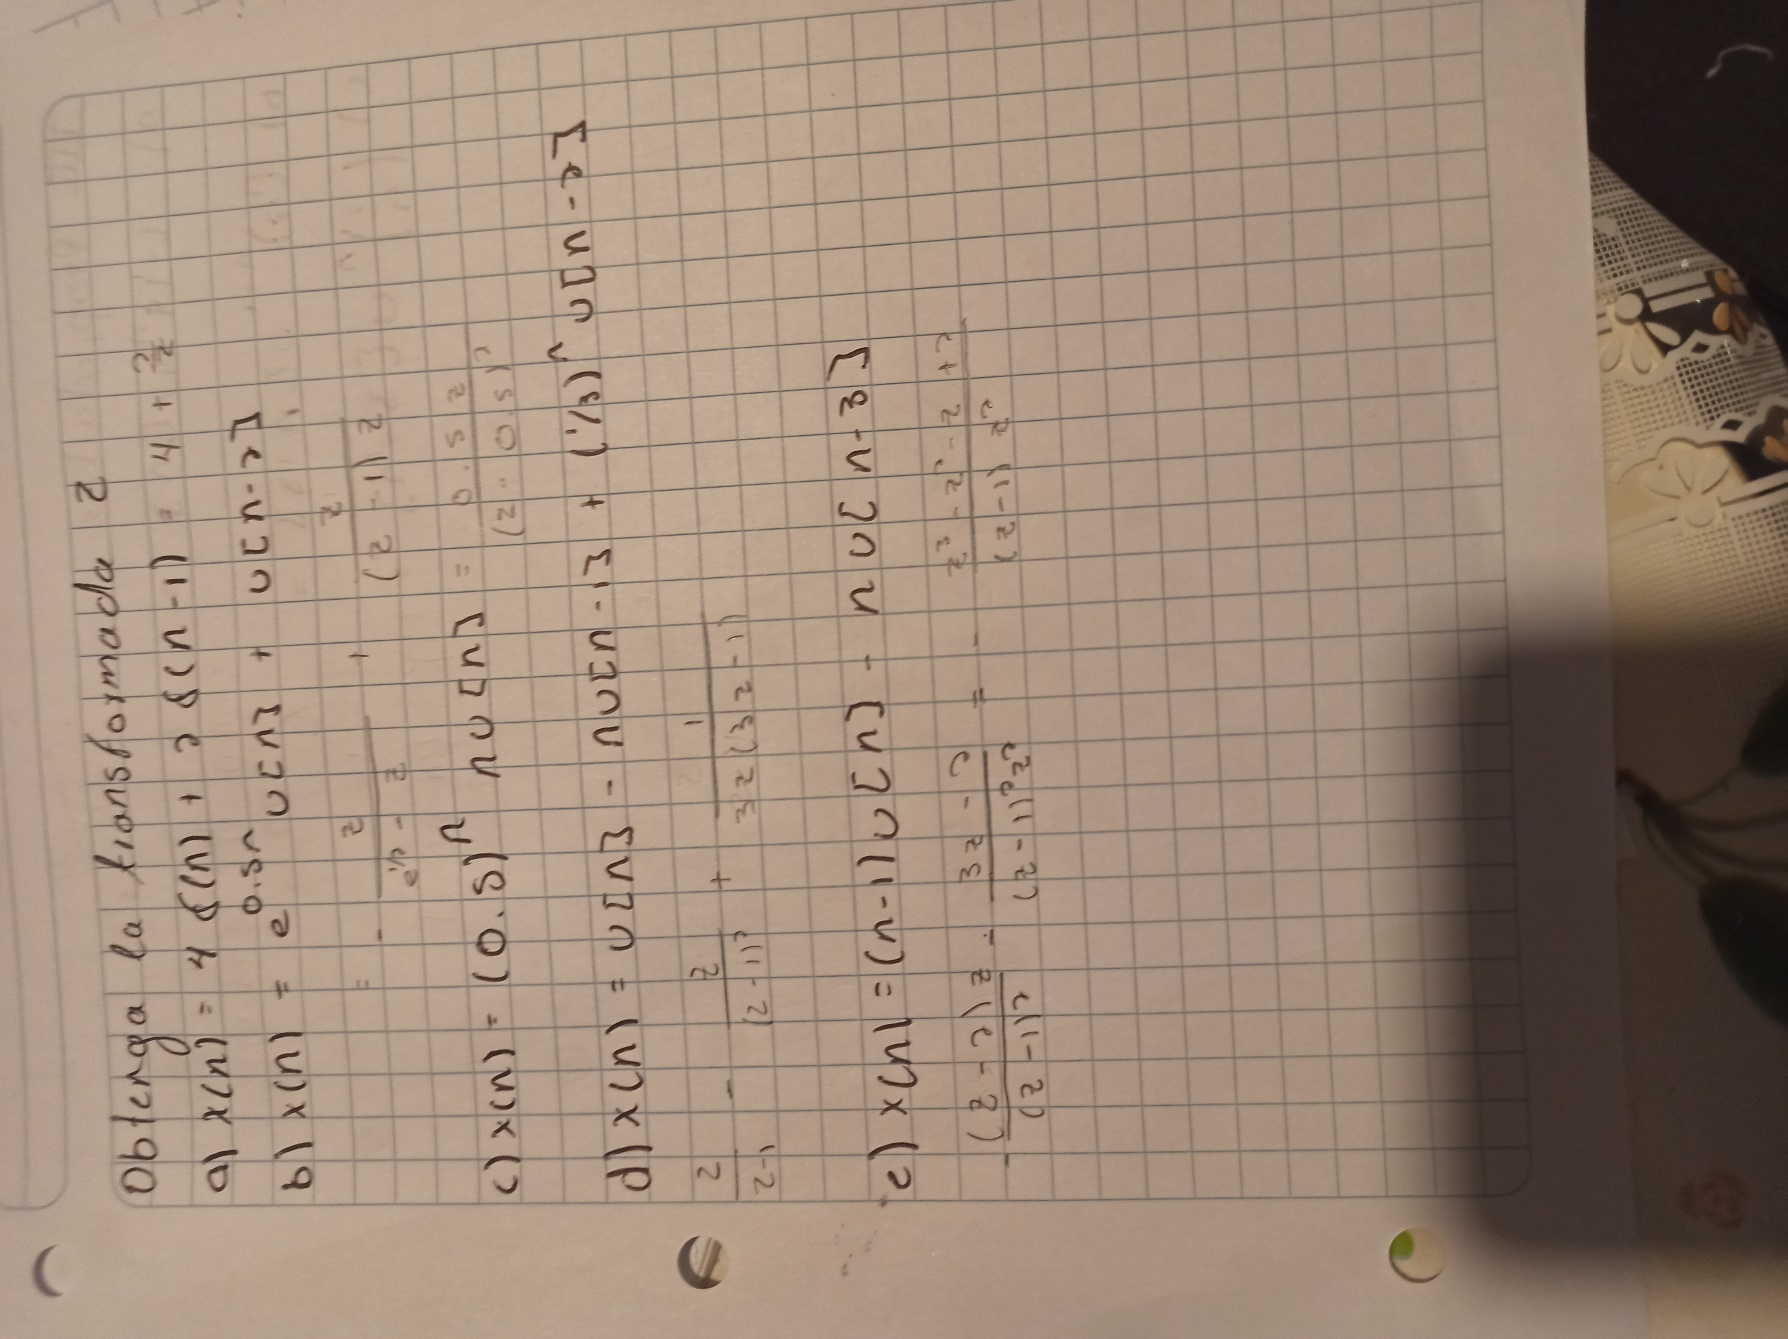 Obtenga la transformada Z
a) x(n) = 4 δ(n) + 2 δ(n-1) = 4 + 2/z
b) x(n) = e^0.5n u[n] + u[n-2]
= - z/(e^1/2 - z) + z/((z-1)z)
c) x(n) = (0.5)^n n u[n] = 0.5z/(z-0.5)^2
d) x(n) = u[n] - n u[n-1] + (1/3)^n u[n-2]
z/(z-1) - z/(z-1)^2 + 1/(3z(3z-1))
e) x(n) = (n-1) u[n] - n u[n-3]
- (z-2)z/(z-1)^2 - (3z-2)/((z-1)^2 z^2) = - (z^3-z^2-z+2)/((z-1)z^2)